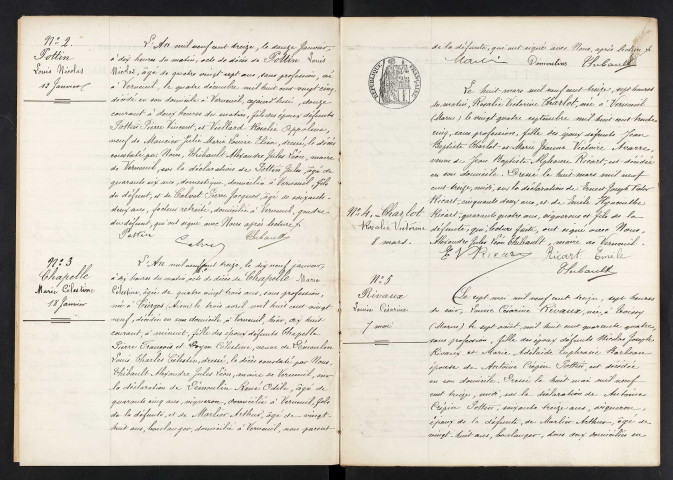 N° 2.
Pottin
Louis Nicolas
12 Janvier
L'An mil neuf cent treize, le douze Janvier,
à dix heures du matin, acte de décès de Pottin Louis
Nicolas, âgé de quatre vingt sept ans, sans profession, né
à Verneuil, le quatre décembre mil huit cent vingt cinq,
décédé en son domicile à Verneuil, aujourd'hui, douze
courant à deux heures du matin, fils des époux défunts
Pottin Pierre Vincent, et Veillard Rosalie Appoline,
veuf de Julie Marie Louise Elisa, dressé, le décès
constaté par Nous, Thibault Alexandre Jules Léon, maire
de Verneuil, sur la déclaration de Pottin Jules, âgé de
quarante six ans, domestique, domicilié à Verneuil, fils
du défunt, et de Calvet Pierre Jacques, âgé de soixante
deux ans, facteur retraité, domicilié à Verneuil, gendre
du défunt, qui ont signé avec Nous après lecture
Pottin
Calvet
Thibault
N° 3
Chapelle
Marie Célestine
18 Janvier
L'An mil neuf cent treize, le dix neuf janvier,
à dix heures du matin, acte de décès de Chapelle Marie
Célestine, âgée de quatre vingt trois ans, sans profession,
née à Vincy, Aisne le trois avril mil huit cent vingt
neuf, décédée en son domicile à Verneuil, hier, dix huit
courant, à minuit, fille des époux défunts Chapelle
Pierre François et Célestine, veuve de Démoulin
Louis Charles Célestin, dressé, le décès constaté par Nous,
Thibault Alexandre Jules Léon, maire de Verneuil, sur
la déclaration de Démoulin René Odile, âgé de
quarante cinq ans, vigneron, domicilié à Verneuil, fils
de la défunte, et de Marlier Arthur, âgé de vingt
huit ans, boulanger, domicilié à Verneuil, non parent
de la défunte, qui ont signé avec Nous, après lecture
Marlier Demoulin Thibault
RÉPUBLIQUE FRANÇAISE
N° 4. Charlot
Rosalie Victorine
8 mars.
Le huit mars mil neuf cent treize, sept heures
du matin, Rosalie Victorine Charlot, née à Verneuil
(Marne) le vingt quatre septembre mil huit cent trente
cinq, sans profession, fille des époux défunts Jean
Baptiste Charlot et Marie Jeanne Victoire
veuve de Jean Baptiste Alphonse Ricart, est décédée
en son domicile. Dressé le huit mars mil neuf
cent treize, midi, sur la déclaration de Ernest Joseph Victor
Ricart, cinquante deux ans, et de Emile Hyacinthe
Ricart, quarante quatre ans, vignerons et fils de la
défunte, qui, lecture faite, ont signé avec Nous,
Alexandre Jules Léon Thibault, maire de Verneuil.
E V Ricart Ricart Emile
Thibault
N° 5
Rivaux
Louise Césarine
7 mai
Le sept mai mil neuf cent treize, sept heures
du soir, Louise Césarine Rivaux, née à
(Marne) le sept août mil huit cent quarante quatre,
sans profession, fille des époux défunts Nicolas Joseph
Rivaux et Marie Adélaïde Euphrasie
épouse de Antoine Crépin Pottin, est décédée
en son domicile. Dressé le huit mai mil neuf
cent treize, midi, sur la déclaration de Antoine
Crépin Pottin, soixante treize ans, vigneron,
époux de la défunte, de Marlier Arthur, âgé de
vingt-huit ans, boulanger, tous deux domiciliés en